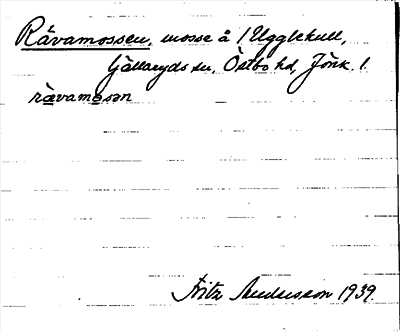 Råvamossen, mosse å 1 Ugglekull,
Gällaryds sn, Östbo hd, Jönk. l.
rävamosən
Fritz Andersson 1939.